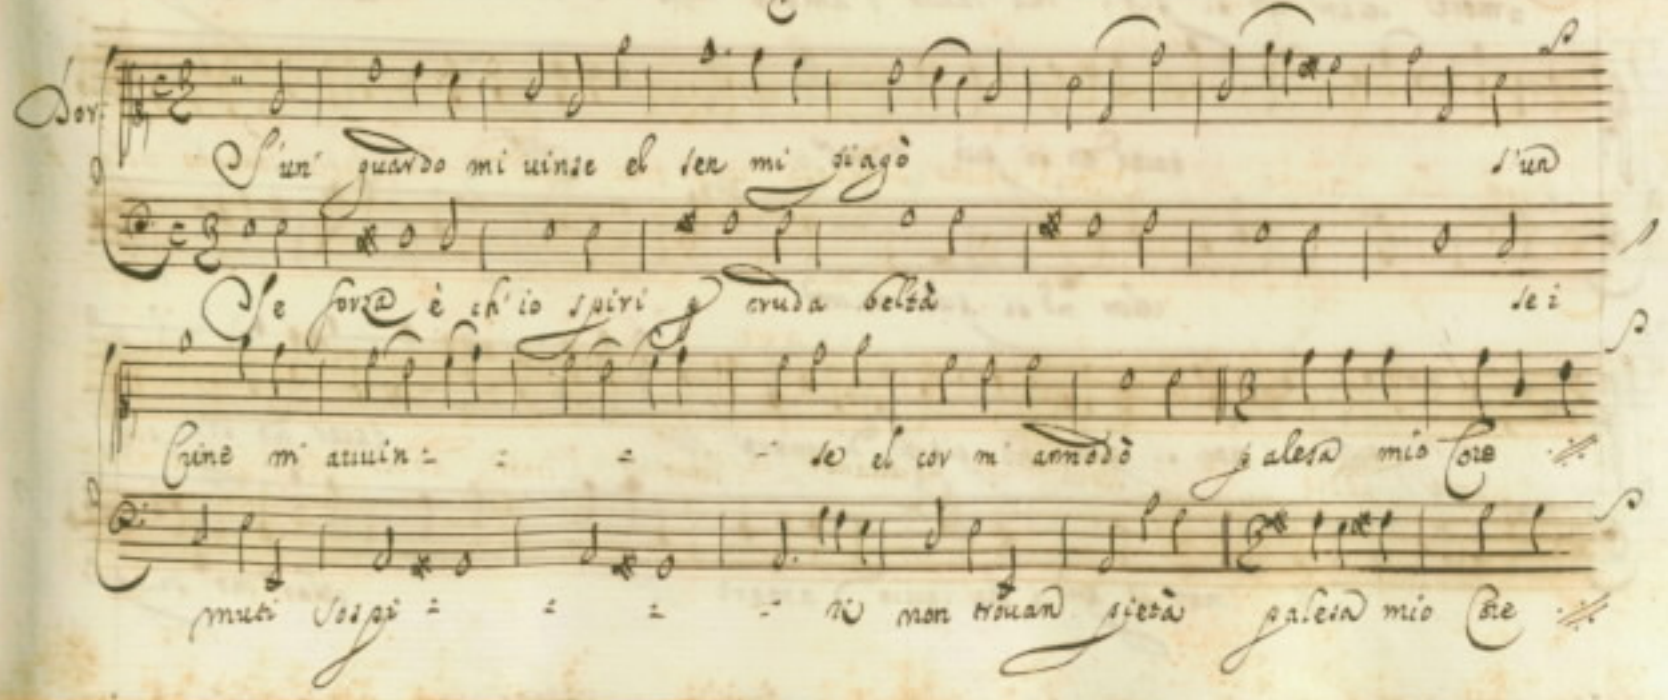 Dor:
S'un' guardo mi uinse el sen mi piagò s'un
Se forza è ch'io spiri p cruda beltà se i
Crine mi auuin - - - - se el cor m'annodò palesa mio Core
muti sospi - - - - ri non trouan pietà palesa mio Core